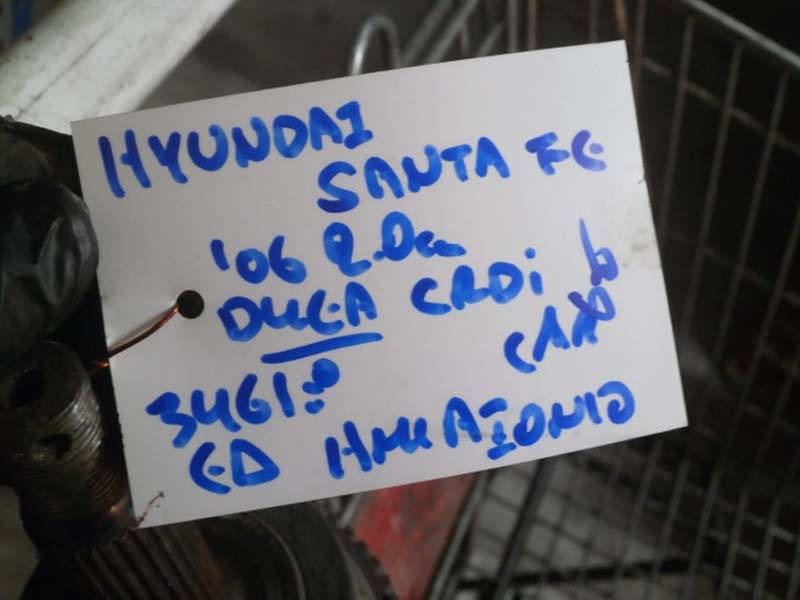 HYUNDAI
SANTA FE
'06 2.0cc
D4EA CRDi
ΕΔ ΗΜΙΑΞΟΝΙΟ